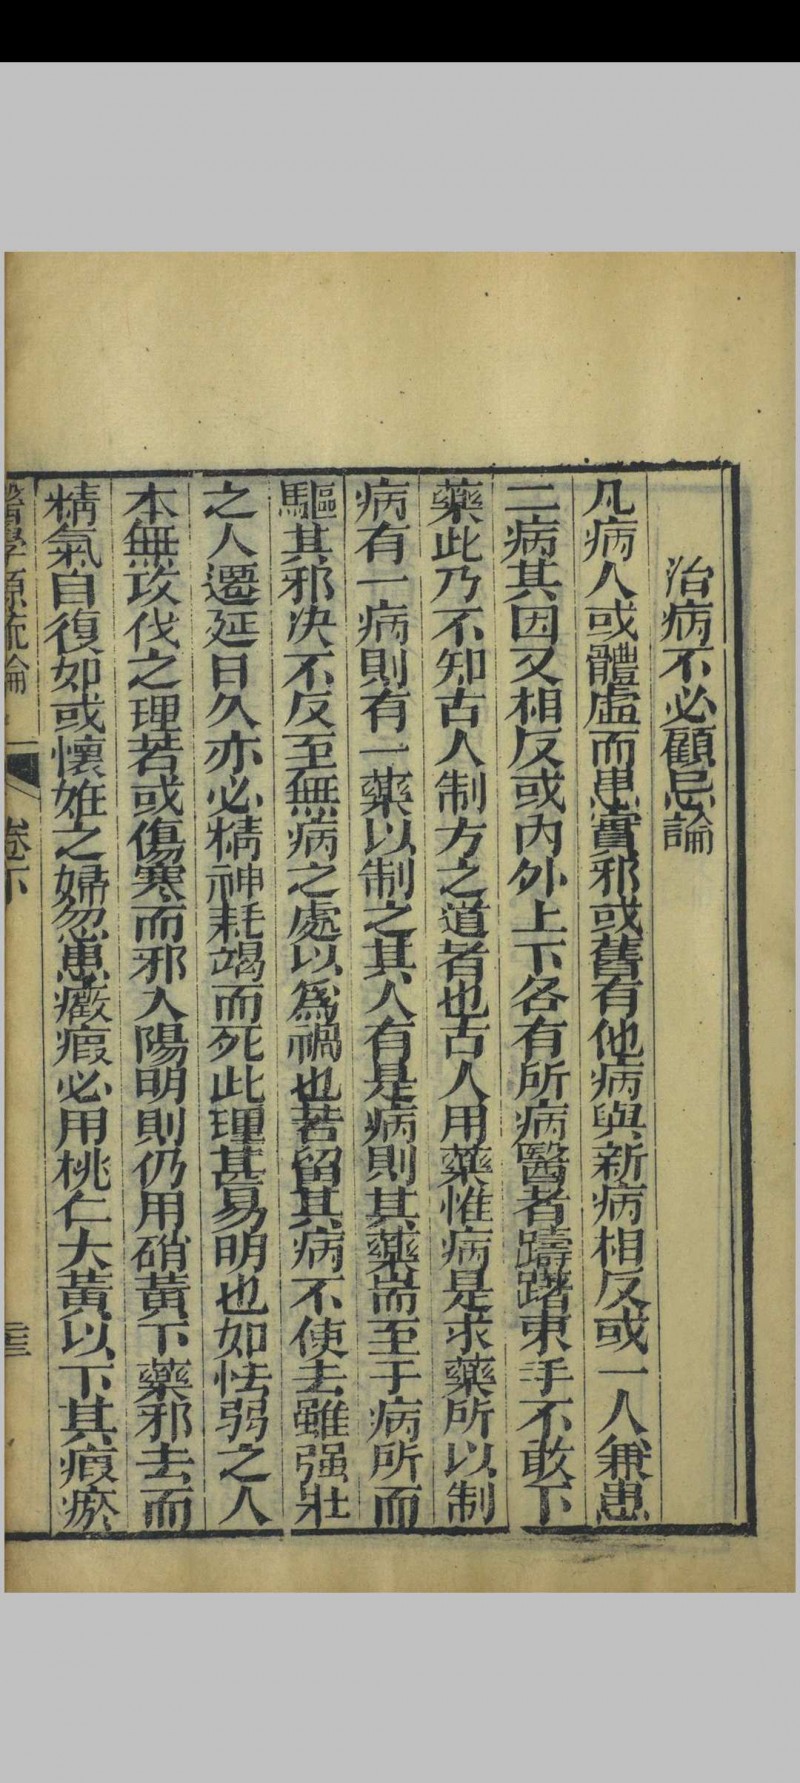 治病不必顧忌論
凡病人或體虛而患實邪或舊有他病與新病相反或一人兼患
二病其因又相反或内外上下各有所病醫者躊躇束手不敢下
藥此乃不知古人制方之道者也古人用藥惟病是求藥所以制
病有一病則有一藥以制之其人有是病則其藥耑至于病所而
驅其邪决不反至無病之處以爲禍也若留其病不使去雖强壯
之人遷延日久亦必精神耗竭而死此理甚易明也如怯弱之人
本無攻伐之理若或傷寒而邪入陽明則仍用硝黃下藥邪去而
精氣自復如或懷姙之婦忽患癥瘕必用桃仁大黃以下其瘕瘀
醫學源流論 卷下